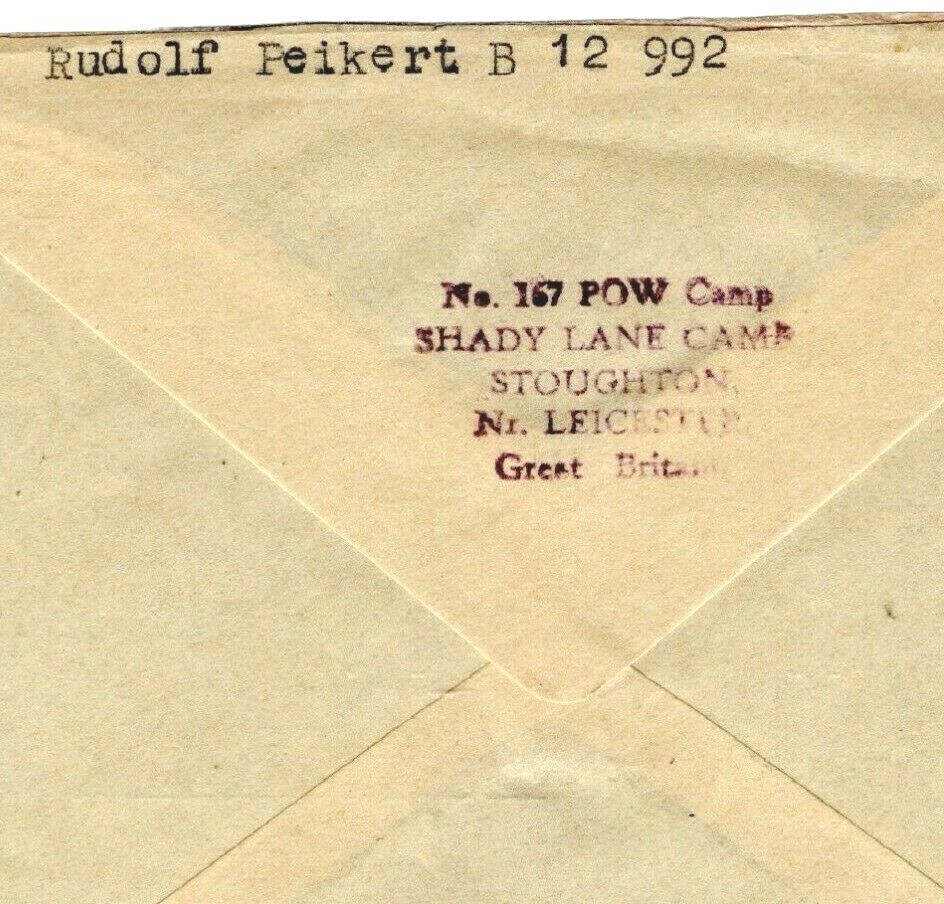 Rudolf Peikert B 12 992
No. 167 POW Camp
SHADY LANE CAMP
STOUGHTON,
Nr. LEICESTER,
Great Britain.